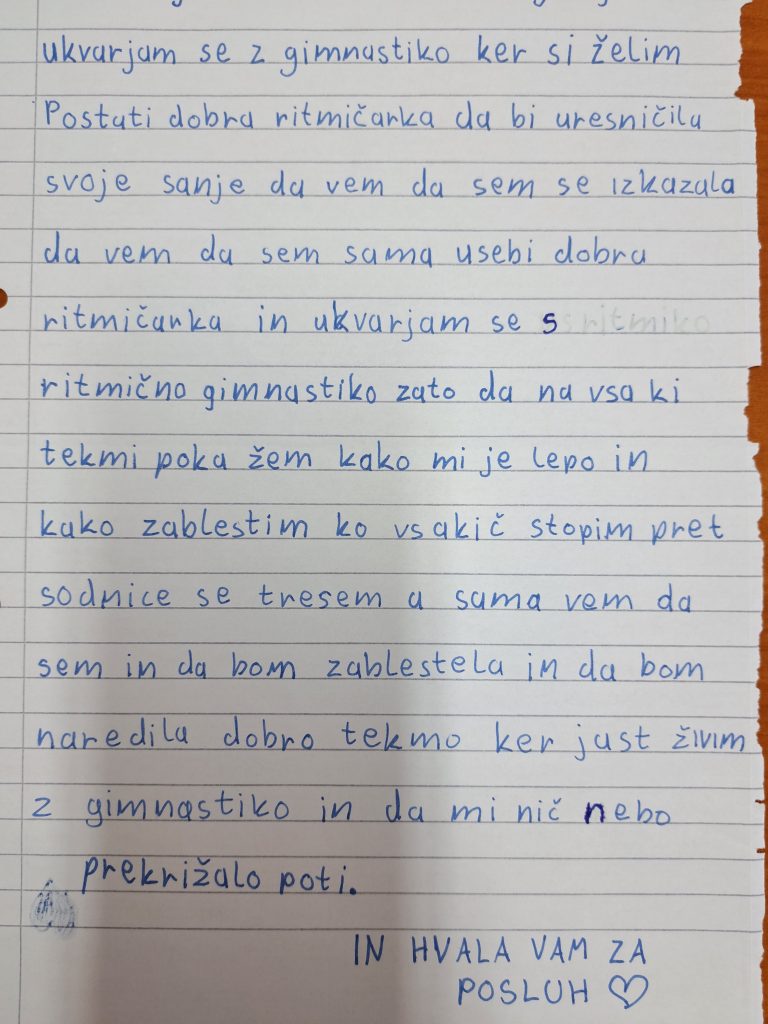 ukvarjam se z gimnastiko ker si želim
Postati dobra ritmičarka da bi uresničila
svoje sanje da vem da sem se izkazala
da vem da sem sama usebi dobra
ritmičarka in ukvarjam se s s ritmiko
ritmično gimnastiko zato da na vsa ki
tekmi poka žem kako mi je lepo in
kako zablestim ko vsakič stopim pret
sodnice se tresem a sama vem da
sem in da bom zablestela in da bom
naredila dobro tekmo ker just živim
z gimnastiko in da mi nič nebo
prekrižalo poti.
IN HVALA VAM ZA
POSLUH ♡